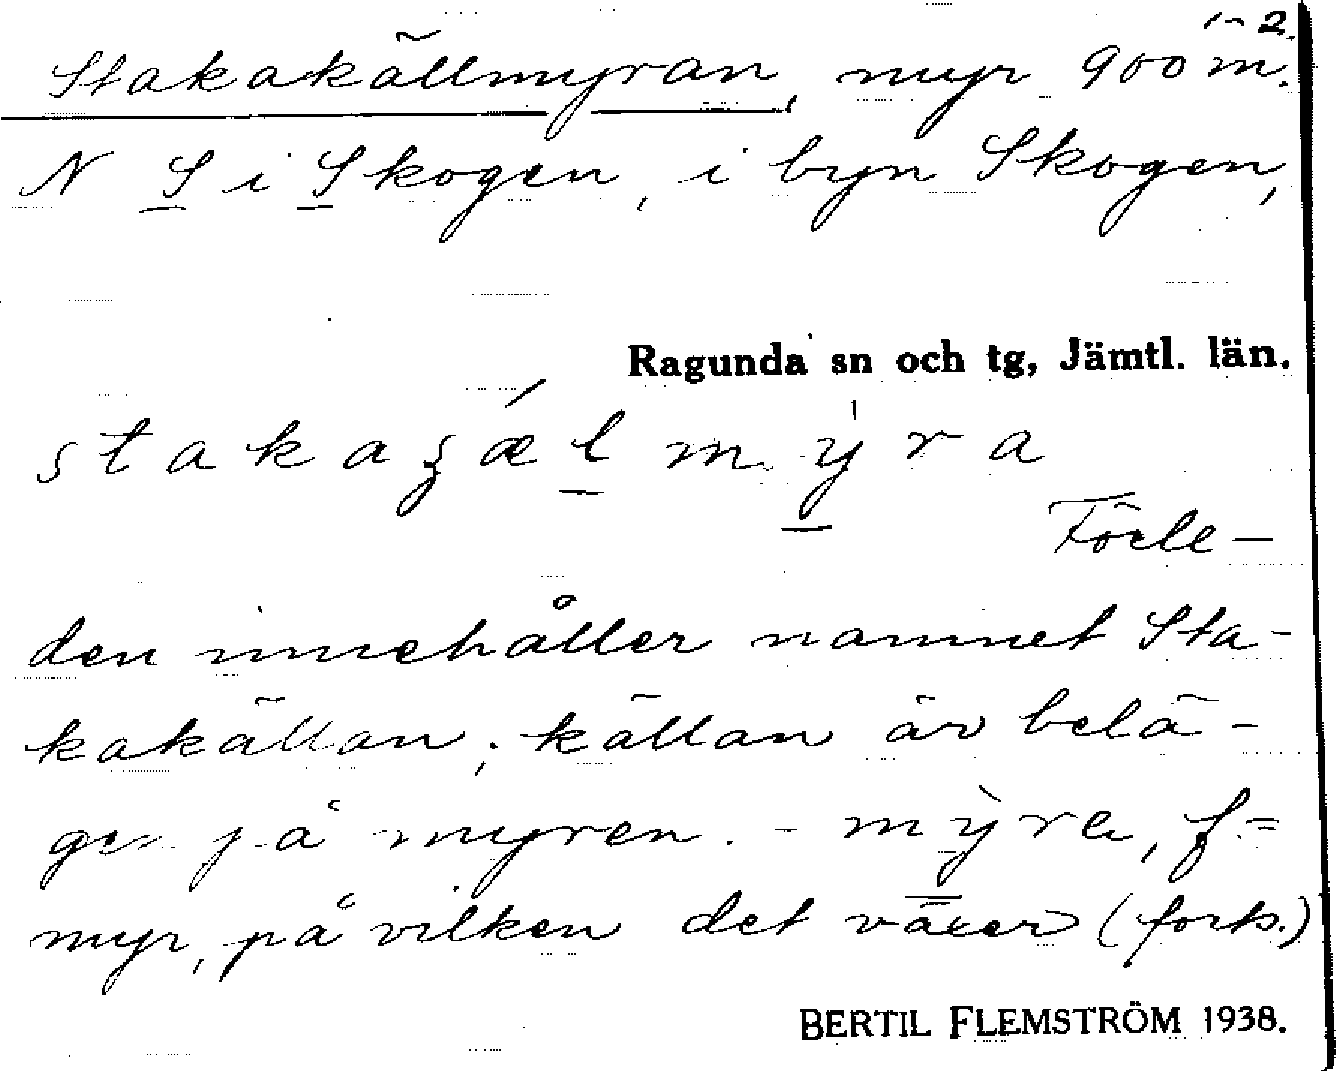 1-2.
Stakakällmyran, myr 900 m.
N S i Skogen, i byn Skogen,
Ragunda sn och tg, Jämtl. län.
stakaʒǽlmy̍ra
Förle-
den innehåller namnet Sta-
kakällan; källan är belä-
gen på myren. - mỳra, f. =
myr, på vilken det växer (forts.)
BERTIL FLEMSTRÖM 1938.